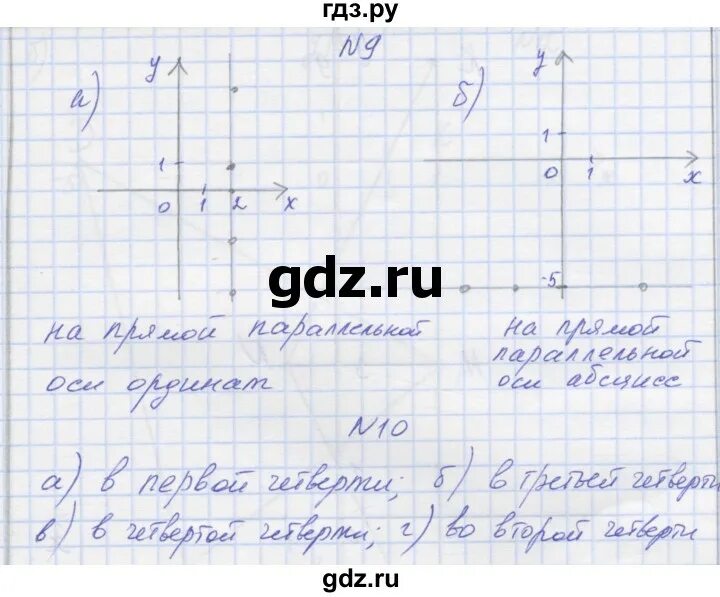 гдз.ру
N9
а)
y
1
0 1 2 x
б)
y
1
0 1 x
-5
gdz.ru
на прямой параллельной
оси ординат
на прямой
параллельной
оси абсцисс
N10
а) в первой четверти; б) в третьей четверти
в) в четвертой четверти; г) во второй четверти
gdz.ru